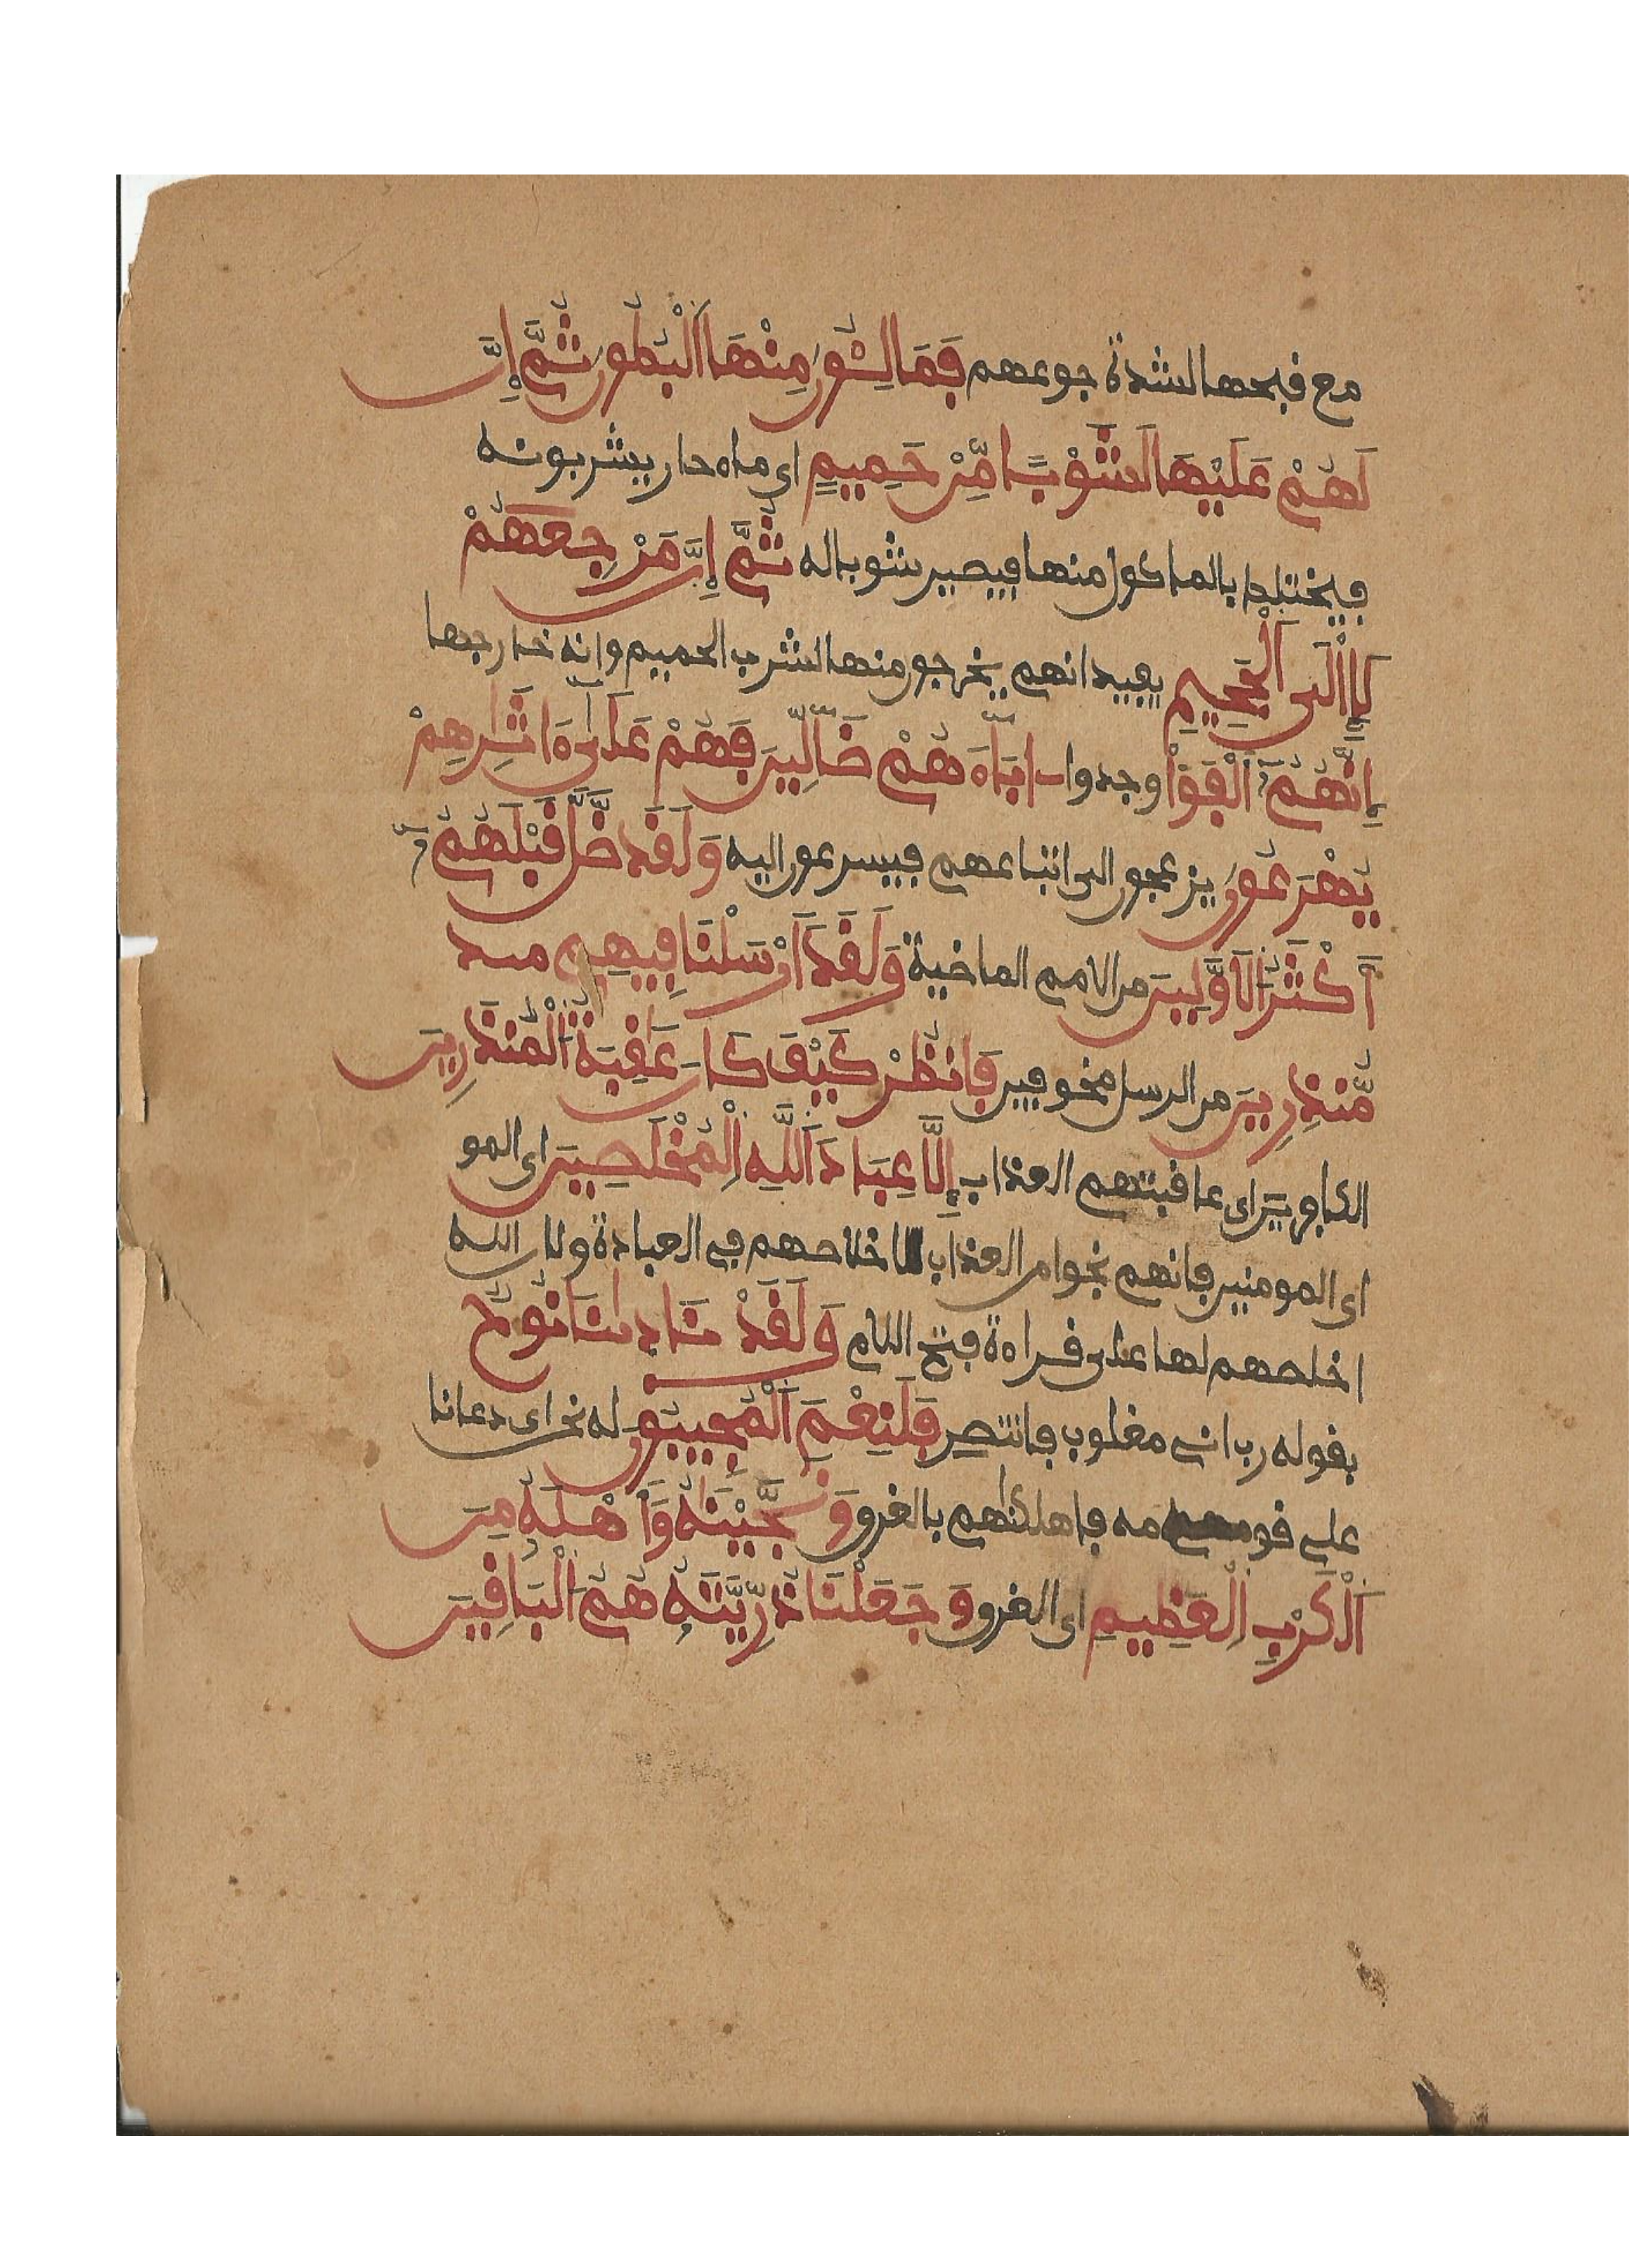 مع قبحها لشدة جوعهم فَمَالِـُٔونَ مِنْهَا اَلْبُطُونَ ثُمَّ إِنَّ
لَهُمْ عَلَيْهَا لَشَوْبًا مِّنْ حَمِيمٍ اى ماء حار يشربونه
فيختلط بالماكول منها فيصير شوبا له ثُمَّ إِنَّ مَرْجِعَهُمْ
لَإِالَى اَلْجَحِيمِ يفيد انهم يخرجون منها لشرب الحميم وانه خارجها
إِنَّهُمُۥٓ أَلْفَوْاْ وجدوا ءَابَآءَهُمْ ضَآلِّينَ فَهُمْ عَلَىٰٓ ءَاثٰرِهِمْ
يُهْرَعُونَ يزعجون الى اتباعهم فيسرعون اليه وَلَقَد ضَّلَّ قَبْلَهُمُۥٓ
أَكْثَرُ اَلْأَوَّلِينَ من الامم الماضية وَلَقَدَ اَرْسَلْنَا فِيهِم
مُّنذِرِينَ من الرسل مخوفين فَانظُرْ كَيْفَ كَانَ عَٰقِبَةُ اُلْمُنذَرِينَ
الكافرين اى عاقبتهم العذاب إِلَّا عِبَادَ اَللَّهِ اِلْمُخْلَصِينَ اى المو
اى المومنين فانهم نجوا من العذاب لاخلاصهم في العبادة ولان الله
اخلصهم لها على قراءة فتح اللام وَلَقَدْ نَادٰىنَا نُوحٌ
بقوله رب اني مغلوب فانتصر فَلَنِعْمَ اَلْمُجِيبُونَ له نحن اى دعانا
على قومه فاهلكناهم بالغرق وَنَجَّيْنَٰهُ وَأَهْلَهُۥ مِنَ
اَلْكَرْبِ اِلْعَظِيمِ اى الغرق وَجَعَلْنَا ذُرِّيَّتَهُۥ هُمُ اُلْبَاقِينَ